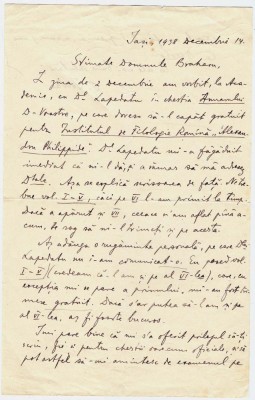 Iași, 1938 Decembrie 14.
Stimate Domnule Brahem,
În ziua de 2 Decembrie am vorbit, la Aca-
demie, cu Dl Lapedatu în chestia Anuarului
D-Voastre, pe care doresc să-l capăt gratuit
pentru Institutul de Filologie Română „Alexan-
dru Philippide". Dl Lapedatu mi-a făgăduit
imediat că ni-l dă, și a rămas să mă adresez
Dtale. Așa se explică scrisoarea de față. Ne tre-
buie vol. I–V, căci pe VI l-am primit la timp.
Dacă a apărut și VII, ceeace n'am aflat până a-
cum, te rog să ni-l trimeți și pe acesta.
Aș adăuga o rugăminte personală, pe care Dlui
Lapedatu nu i-am comunicat-o. Eu posed vol.
I–V (credeam că-l am și pe al VI-lea), care, cu
excepția mi se pare a primului, mi-au fost tri-
mese gratuit. Dacă s'ar putea să-l am și pe
al VI-lea, aș fi foarte bucuros.
Îmi pare bine că mi s'a oferit prilejul să-ți
scriu, fie și pentru chestii oarecum oficiale, și să
pot astfel să-mi amintesc de examenul pe